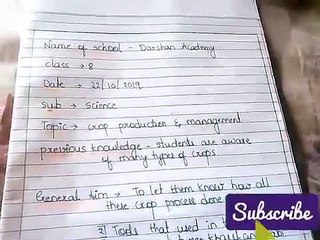 Name of school - Darshan Academy
class → 8
Date → 22/10/2019
sub → Science
Topic → crop production & management
previous knowledge - students are aware
of many types of crops
General Aim → To let them know how all
these crop process done
2) Tools that used in
Subscribe